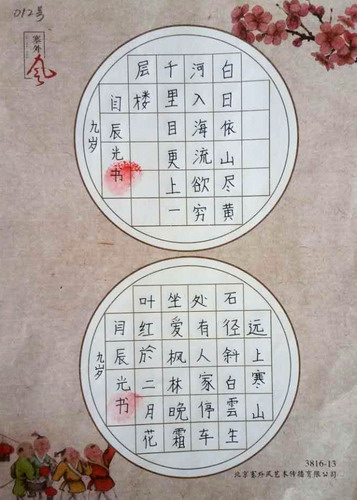 012号
塞外
风
白日依山尽黄
河入海流欲穷
千里目更上一
层楼
闫辰光书
九岁
远上寒山
石径斜白雲生
处有人家停车
坐爱枫林晚霜
叶红於二月花
闫辰光书
九岁
3816-13
北京塞外风艺术传播有限公司